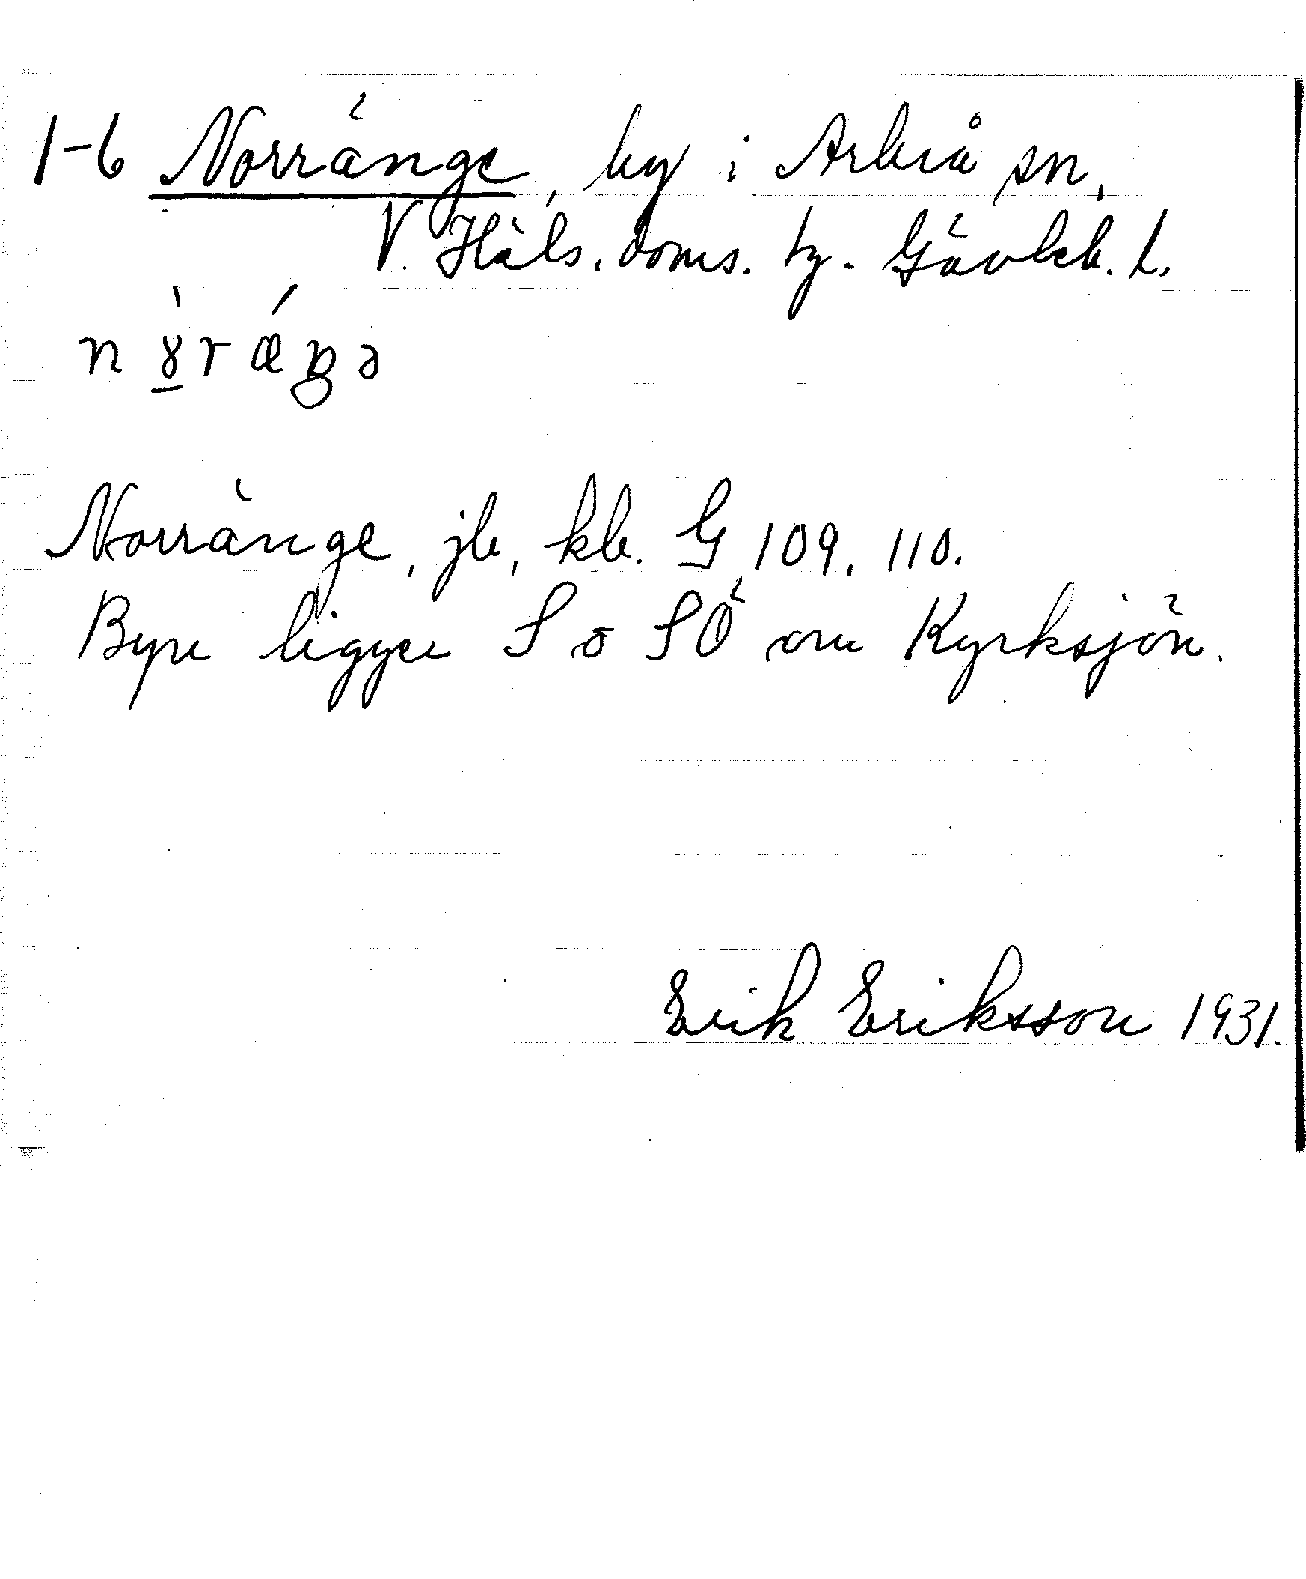 1-6 Norränge, by i Arbrå sn,
V. Häls. doms. tg. Gävleb. l.
Norränge, jb, kb. G 109, 110.
Byn ligger S o SÖ om Kyrksjön.
Erik Eriksson 1931.